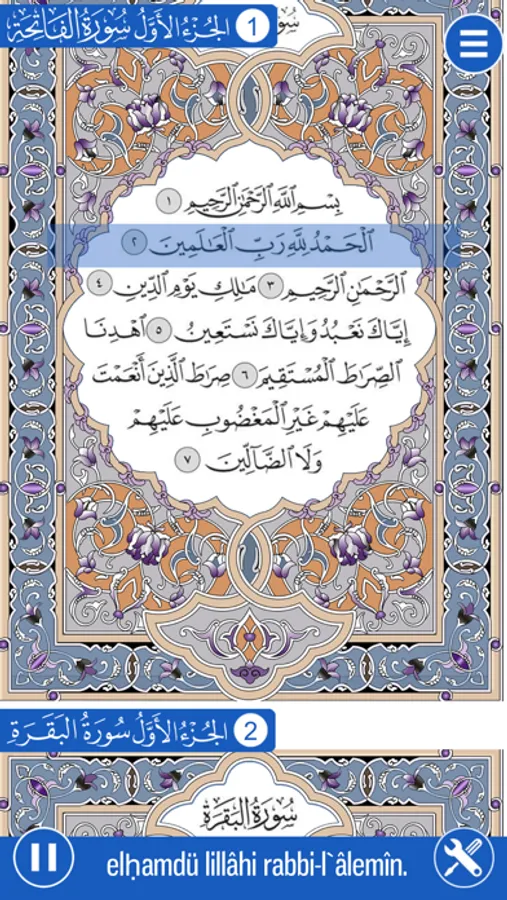 الجُزْءُ الأَوَّلُ سُورَةُ الفَاتِحَةِ 1
بِسْمِ اللَّهِ الرَّحْمَٰنِ الرَّحِيمِ ١
الْحَمْدُ لِلَّهِ رَبِّ الْعَالَمِينَ ٢
الرَّحْمَٰنِ الرَّحِيمِ ٣ مَالِكِ يَوْمِ الدِّينِ ٤
إِيَّاكَ نَعْبُدُ وَإِيَّاكَ نَسْتَعِينُ ٥ اهْدِنَا
الصِّرَاطَ الْمُسْتَقِيمَ ٦ صِرَاطَ الَّذِينَ أَنْعَمْتَ
عَلَيْهِمْ غَيْرِ الْمَغْضُوبِ عَلَيْهِمْ
وَلَا الضَّالِّينَ ٧
الجُزْءُ الأَوَّلُ سُورَةُ البَقَرَةِ 2
سُورَةُ البَقَرَةِ
elḥamdü lillâhi rabbi-l`âlemîn.